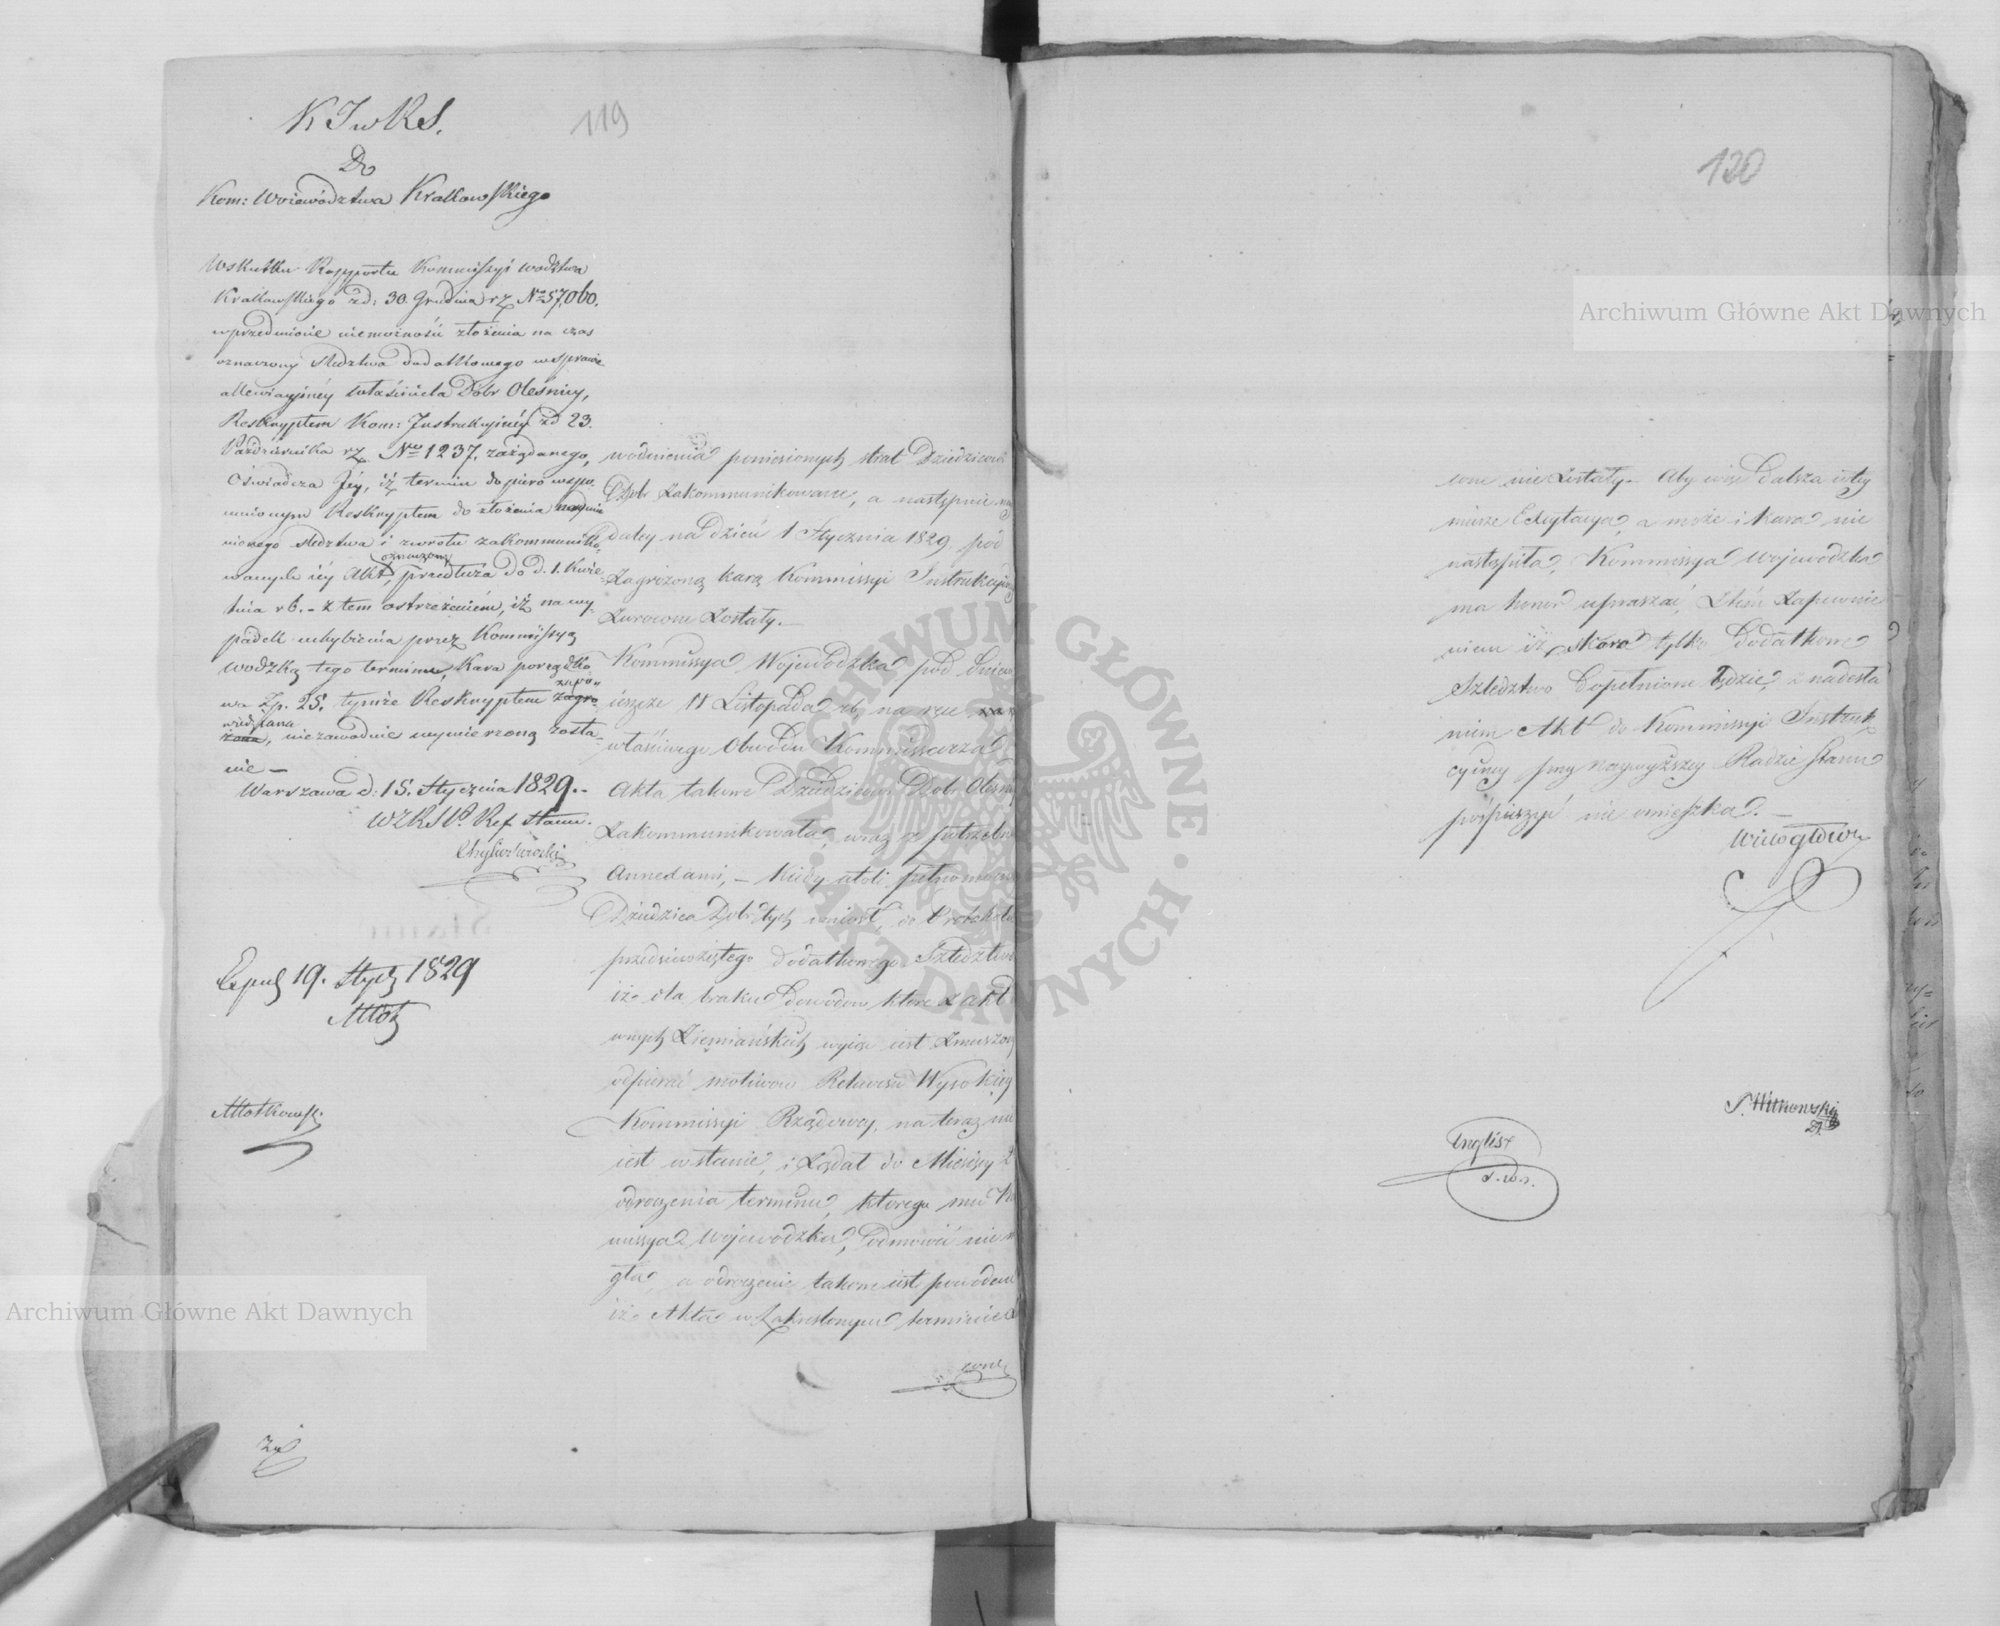 119
K I w R S.
Do
Kom: Woiewództwa Krakowskiego
Wskutku Rapportu Kommissyi Wodztwa
Krakowskiego zd: 30. Grudnia r z. No 57,060.
w przedmiocie niemożności złożenia na czas
oznaczony śledztwa dodatkowego w sprawie
allewiacyinéy właściciela Dóbr Oleśnicy,
Reskryptem Kom: Instrukcyinéy zd 23.
Października r z. No 1237. zażądanego,
Oświadcza Jéy, iż termin dopiero wspo-
mnionym Reskryptem do złożenia
śledztwa i zwrotu zakommuniko-
wanych iéy Akt, oznaczony przedłuża do d. 1. Kwie-
tnia r b. - z tem ostrzeżeniem, iż na wy-
padek uchybienia przez Kommissyą
Wodzką tego terminu, Kara porządko-
wa Zp. 25. tymże Reskryptem zagro-
żona, zapo-
wiedziana, niezawodnie wymierzoną zosta-
nie —
Warszawa d: 15. Stycznia 1829. -
WZRSt. Ref. Stanu.
Exped 19. Stycz 1829
Młotkowski
wodnienia poniesionych strat Dziedzicowi
Dóbr zakommunikowane, a następnie
daley na dzień 1 Stycznia 1829 pod
zagrożoną karą Kommissyi Instrukcyiney
zwrócone zostały. —
Kommissya Wojewodzka pod dniem
ieszcze 11 Listopada rb, na ręce
właściwego Obwodu Kommissarza
Akta takowe Dziedzicowi Dóbr Oleśnicy
zakommunikowała, wraz z potrzebnemi
Annexami, — Kiedy atoli pełnomocnik
Dziedzica Dóbr tych wniósł, do Protokołu
przedsięwziętego dodatkowego Szledztwa
iż dla braku dowodów które z akt
wnych Ziemiańskich wyjąć iest zmuszony
odpierać motiwów Rekursu Wysokiey
Kommissyi Rządowey, na teraz nie
iest w stanie, i żądał do Miesięcy 2
odroczenia terminu, którego mu Kom
missya Wojewodzka, odmówić nie mo
gła, a odroczenie takowe iest powodem
iż Akta w zakreślonym terminie
cone
120
cone nie zostały. — Aby więc dalsza
Excytacya, a może i kara nie
nastąpiła, Kommissya Wojewodzka
ma honor upraszać, z tém zapewnie
niem iż skoro tylko dodatkowe
Szledztwo dopełnione będzie, z nadesła
niem Akt do Kommissyi Instruk
cyiney przy Naywyższey Radzie Stanu
pośpieszyć nie omieszka. —
Wielogłowski
S. Witkowski
Englist
Archiwum Główne Akt Dawnych
Archiwum Główne Akt Dawnych
ARCHIWUM GŁÓWNE · AKT DAWNYCH ·